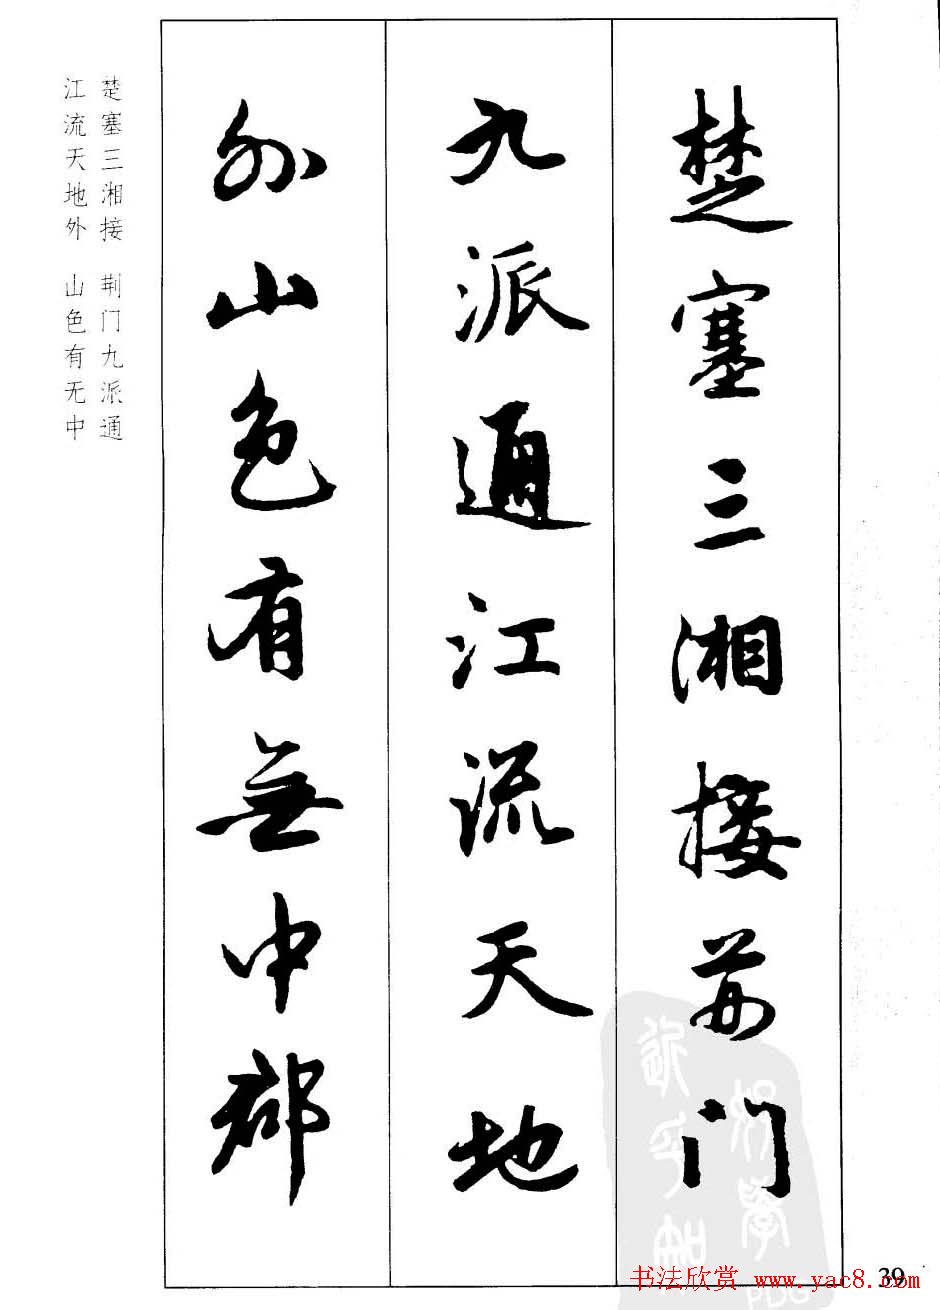 楚塞三湘接荆门
九派通江流天地
外山色有無中郡
楚塞三湘接 荆门九派通
江流天地外 山色有无中
39
书法欣赏 www.yac8.com